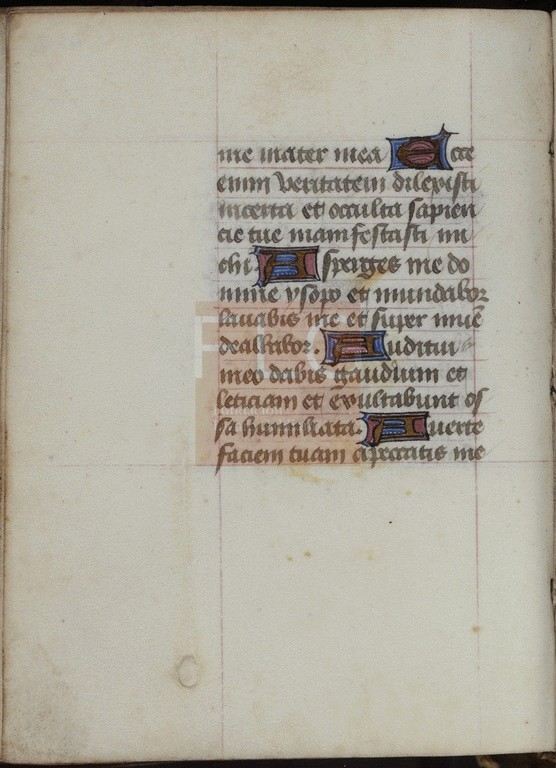 me mater mea Ecce
enim veritatem dilexisti
incerta et occulta sapien
cie tue manifestasti mi
chi Asperges me do
mine ysopo et mundabor
lavabis me et super nivē
dealbabor. Auditui
meo dabis gaudium et
leticiam et exultabunt os
sa humiliata. Averte
faciem tuam a peccatis me